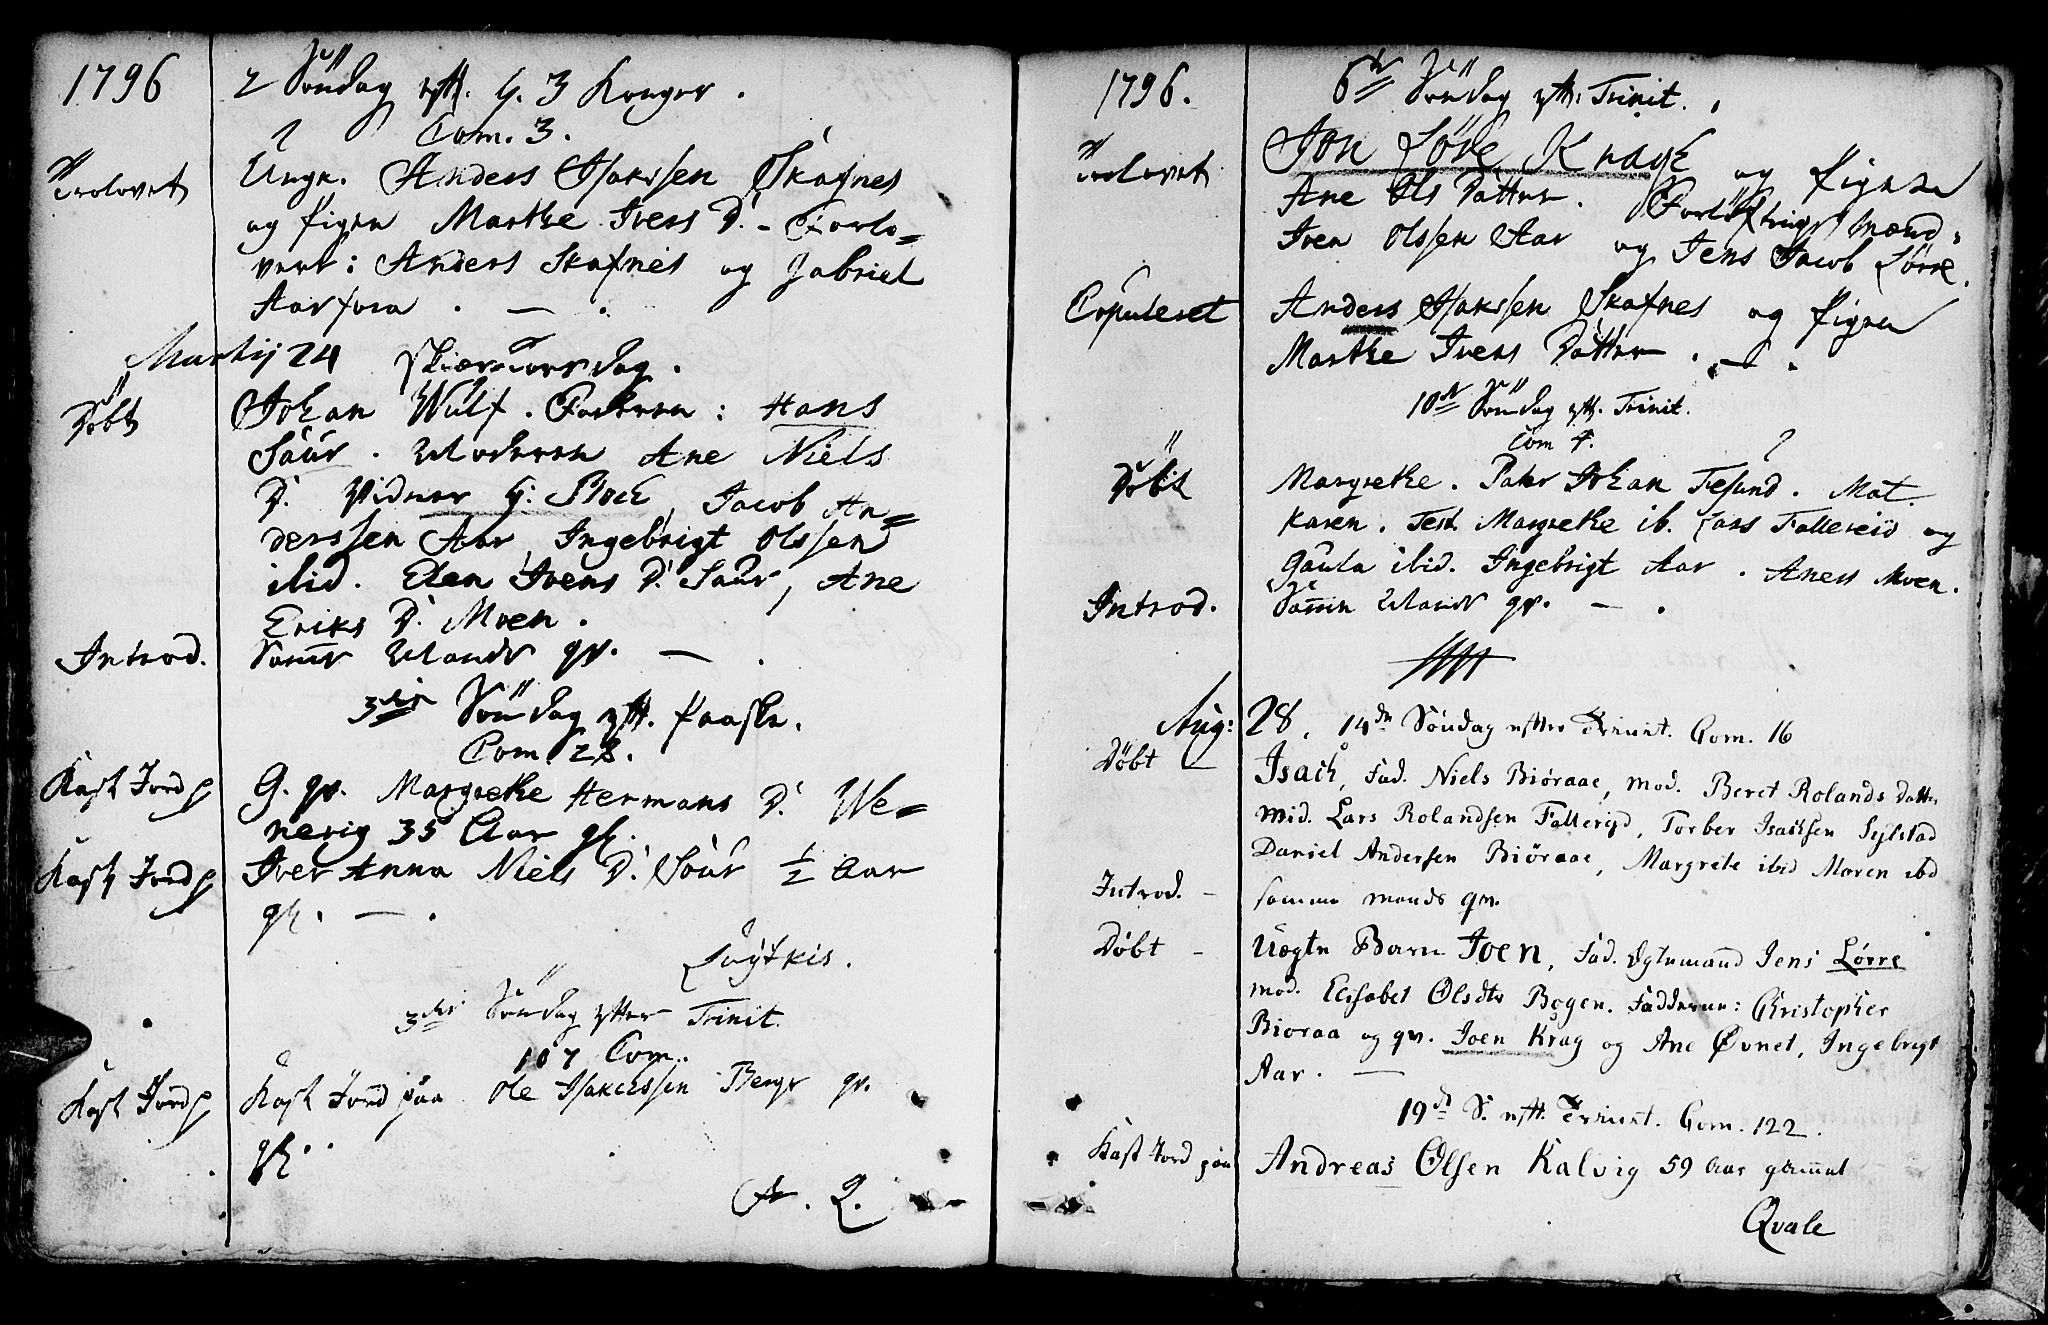 1796
2 Søndag eft. H. 3 Konger.
Com. 3.
Trolovet
Ungk. Anders Isaksen Skafnes
og Pigen Marthe Ivers D. - Forlo=
vere: Anders Skafnes og Gabriel
Aarfora . — .
Martij 24 Skiærtorsdag.
Døbt
Johan Wulf. Faderen: Hans
Saur. Moderen Ane Niels
D. Vidner H: Bloch, Jacob An=
derssen Aar, Ingebrigt Olssen
ibid. Elen Ivens D. Saur, Ane
Eriks D. Moen.
Introd. Samme Mands qv. — .
3die Søndag eft. Paaske.
Com. 28.
Kast Jord p G. qv. Margrethe Hermans D. We=
nevig 35 Aar gl.
Kast Jord p Iver Anna Niels D. Saur ½ Aar
gl. — .
3die Søndag efter Trinit.
107 Com.
Kast Jord p Kast Jord paa Ole Isakssen Berge qv.
gl.
1796.
6te Søndag eft: Trinit.
Trolovet
Jon Løre Krage og Pigen
Ane Ols Datter. Forløftnigs Mænd:
Iven Olssen Aar og Jens Jacob Lørre.
Copuleret Anders Isaksen Skafnes og Pigen
Marthe Ivers Datter . — .
10de Søndag eft. Trinit.
Com 4.
Døbt Margrethe. Pater Johan Tresund. Mat.
Karen. Test. Margrethe ib. Lars Fallereid og
Gaula ibid. Ingebrigt Aar. Aness Moen.
Introd. Samme Mands qv. — .
Aug: 28. 14de Søndag efter Trinit. Com. 16
Døbt — Isach, Fad. Niels Biøraae, mod. Beret Rolands datter
Mid. Lars Rolandsen Fallereyd, Torber Isachsen Sylstad
Daniel Andersen Biøraae, Margrete ibid Maren ibd
Introd. - samme mands qv.
Døbt - Uægte Barn Joen, Fad. Ægtemand Jens Lørre
mod. Elisabet Olsdtr Bogen. Fadderne: Christopher
Bioraa og qv. Joen Krag og Ane Øvnet, Ingebrigt
Aar. —
19de S. eft. Trinit. Com. 122.
Kast Jord paa Andreas Olsen Kalvig 59 Aar gammel
Qvale